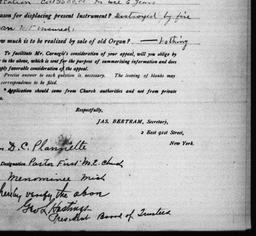 son for displacing present Instrument? Destroyed by fire
an not insured.
ow much is to be realized by sale of old Organ? — Nothing
To facilitate Mr. Carnegie's consideration of your appeal, will you oblige by
in the above, which is sent for the purpose of summarizing information and does
imply favorable consideration of the appeal.
Precise answer to each question is necessary. The leaving of blanks may
correspondence to be filed.
* Application should come from Church authorities and not from private
Respectfully,
JAS. BERTRAM, Secretary,
2 East 91st Street,
New York.
D. C. Plannette
Designation Pastor First M.E. Church
Menominee Mich
hereby verify the above
Geo L Hastings
President Board of Trustees